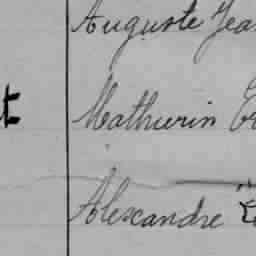 Auguste Jea
Mathurin
Alexandre